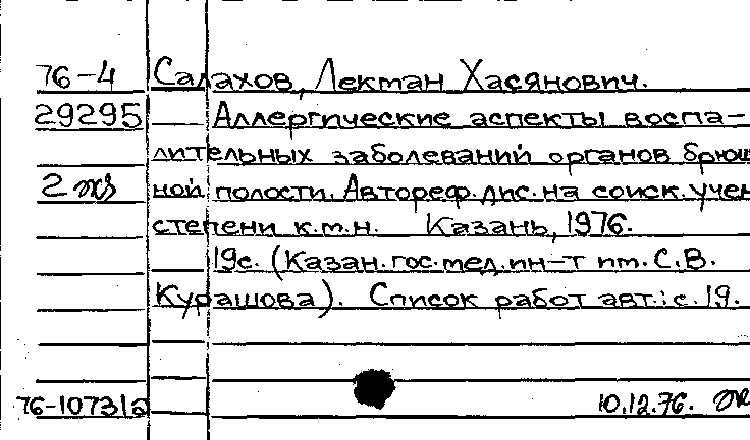 76-4 Салахов, Лектман Хасянович.
29295 Аллергические аспекты воспа-
лительных заболеваний органов брюш
2 экз ной полости. Автореф. дис. на соиск. учен
степени к.м.н. Казань, 1976.
19с. (Казан. гос. мед. ин-т им. С.В.
Курашова). Список работ авт.: с. 19.
76-10731а 10.12.76.